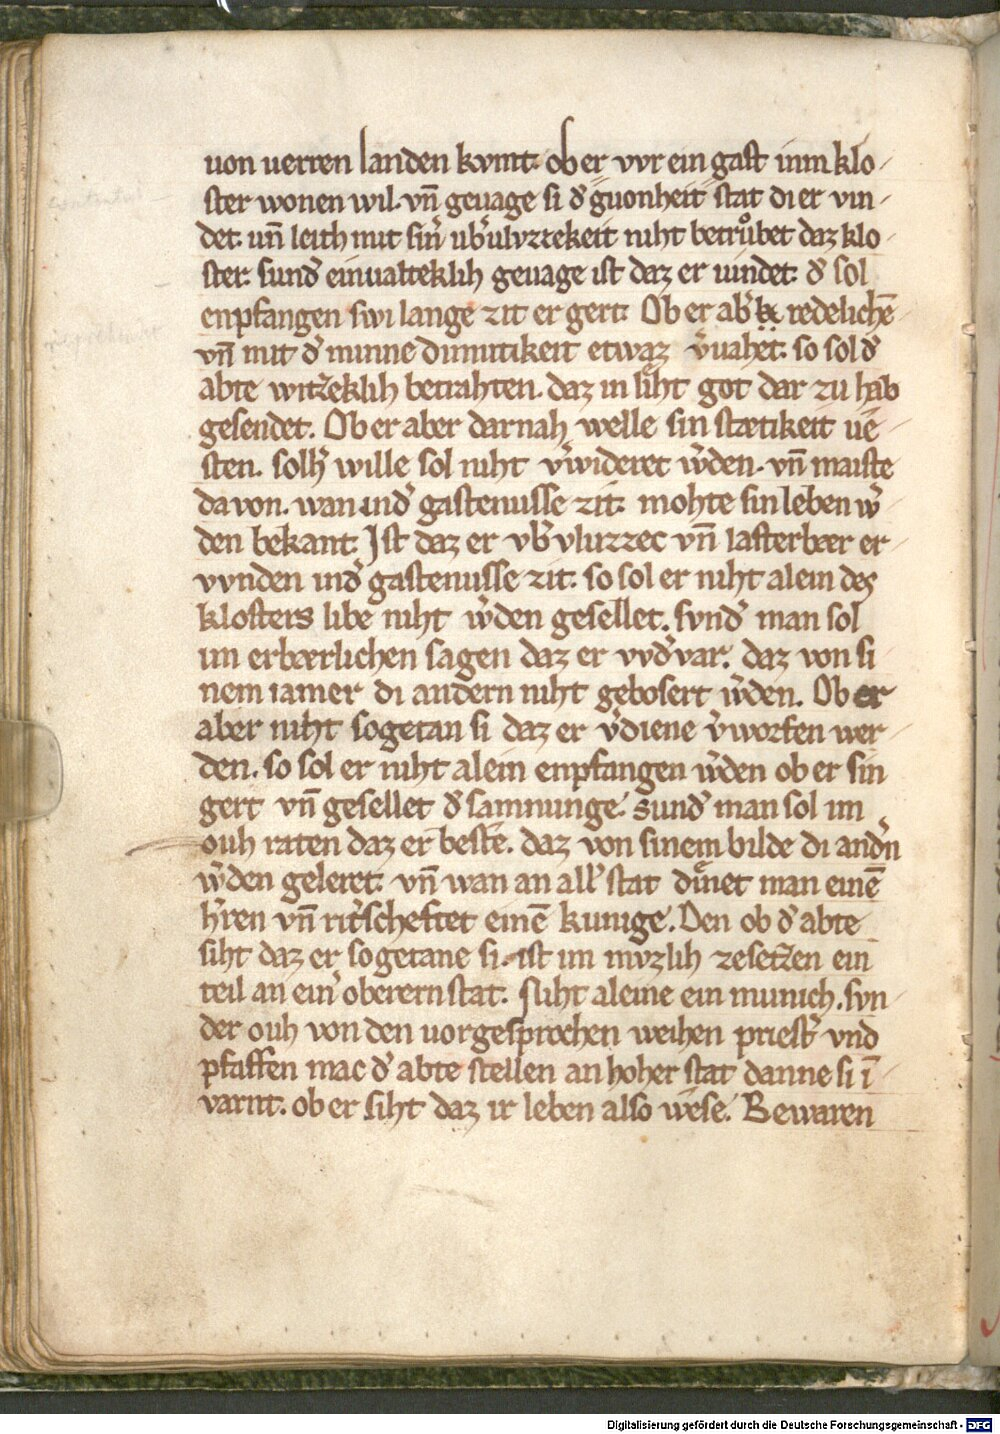 uon uerren landen kvmt. ob er vvr ein gast inm klo-
ster wonen wil. vn̄ geuage si d͛ guonheit stat di er vin-
det. un̄ leith mit sin͛ ub͛ulvzzekeit niht betruͦbet daz klo-
ster. sund͛ einualteklih geuage ist daz er uindet. d͛ sol
enpfangen swi lange zit er gert. Ob er ab͛ redelichē
vn̄ mit d͛ minne dimutikeit etwaz v͛uahet. so sol d͛
abte witzeklih betrahten. daz in liht got dar zu hab
gesendet. Ob er aber dar nah welle sin stætikeit ue-
sten. solh͛ wille sol niht v͛wideret w͛den. vn̄ maiste
da von. wan ind͛ gastenusse zit. mohte sin leben w͛-
den bekant. Ist daz er vb͛vluzzec vn̄ lasterbær er-
vvnden ind͛ gastenusse zit. so sol er niht alein des
klosters libe niht w͛den gesellet. svnd͛ man sol
im erbærlichen sagen daz er vvd͛ var. daz von si
nem iamer di andern niht gebosert w͛den. Ob er
aber niht sogetan si daz er v͛diene v͛worfen wer-
den. so sol er niht alein enpfangen w͛den ob er sin
gert vn̄ gesellet d͛ samnunge. sund͛ man sol im
ouh raten daz er beste. daz von sinem bilde di and͛n
w͛den geleret. vn̄ wan an all͛ stat dinet man einē
h͛ren vn̄ rit͛scheftet einē kunige. Den ob d͛ abte
siht daz er sogetane si. ist im nvzlih zesetzen ein
teil an ein͛ oberern stat. Niht aleine ein munich. svn-
der ouh von den uorgesprochen weihen priest͛ vnd
pfaffen mac d͛ abte stellen an hoher stat danne si ī
varnt. ob er siht daz ir leben also wese. Bewaren
Digitalisierung gefördert durch die Deutsche Forschungsgemeinschaft - DFG